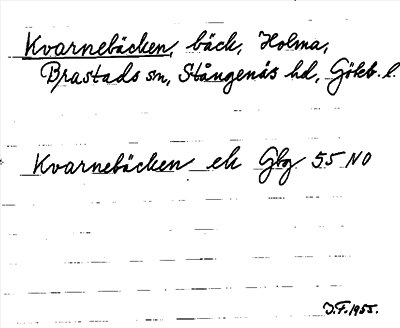 Kvarnebäcken, bäck, Holma,
Brastads sn, Stångenäs hd, Göteb. l.
Kvarnebäcken ek Gbg 55 NO
J.F. 1955.